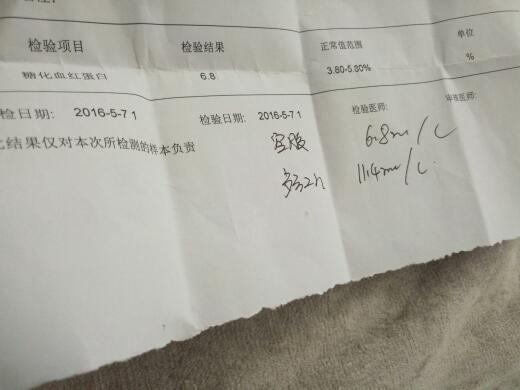 检验项目 检验结果 正常值范围 单位
糖化血红蛋白 6.8 3.80-5.80% %
检日期: 2016-5-7 1 检验日期: 2016-5-7 1 检验医师: 审核医师:
结果仅对本次所检测的样本负责
空腹 6.8m/L
2h 11.4m/L